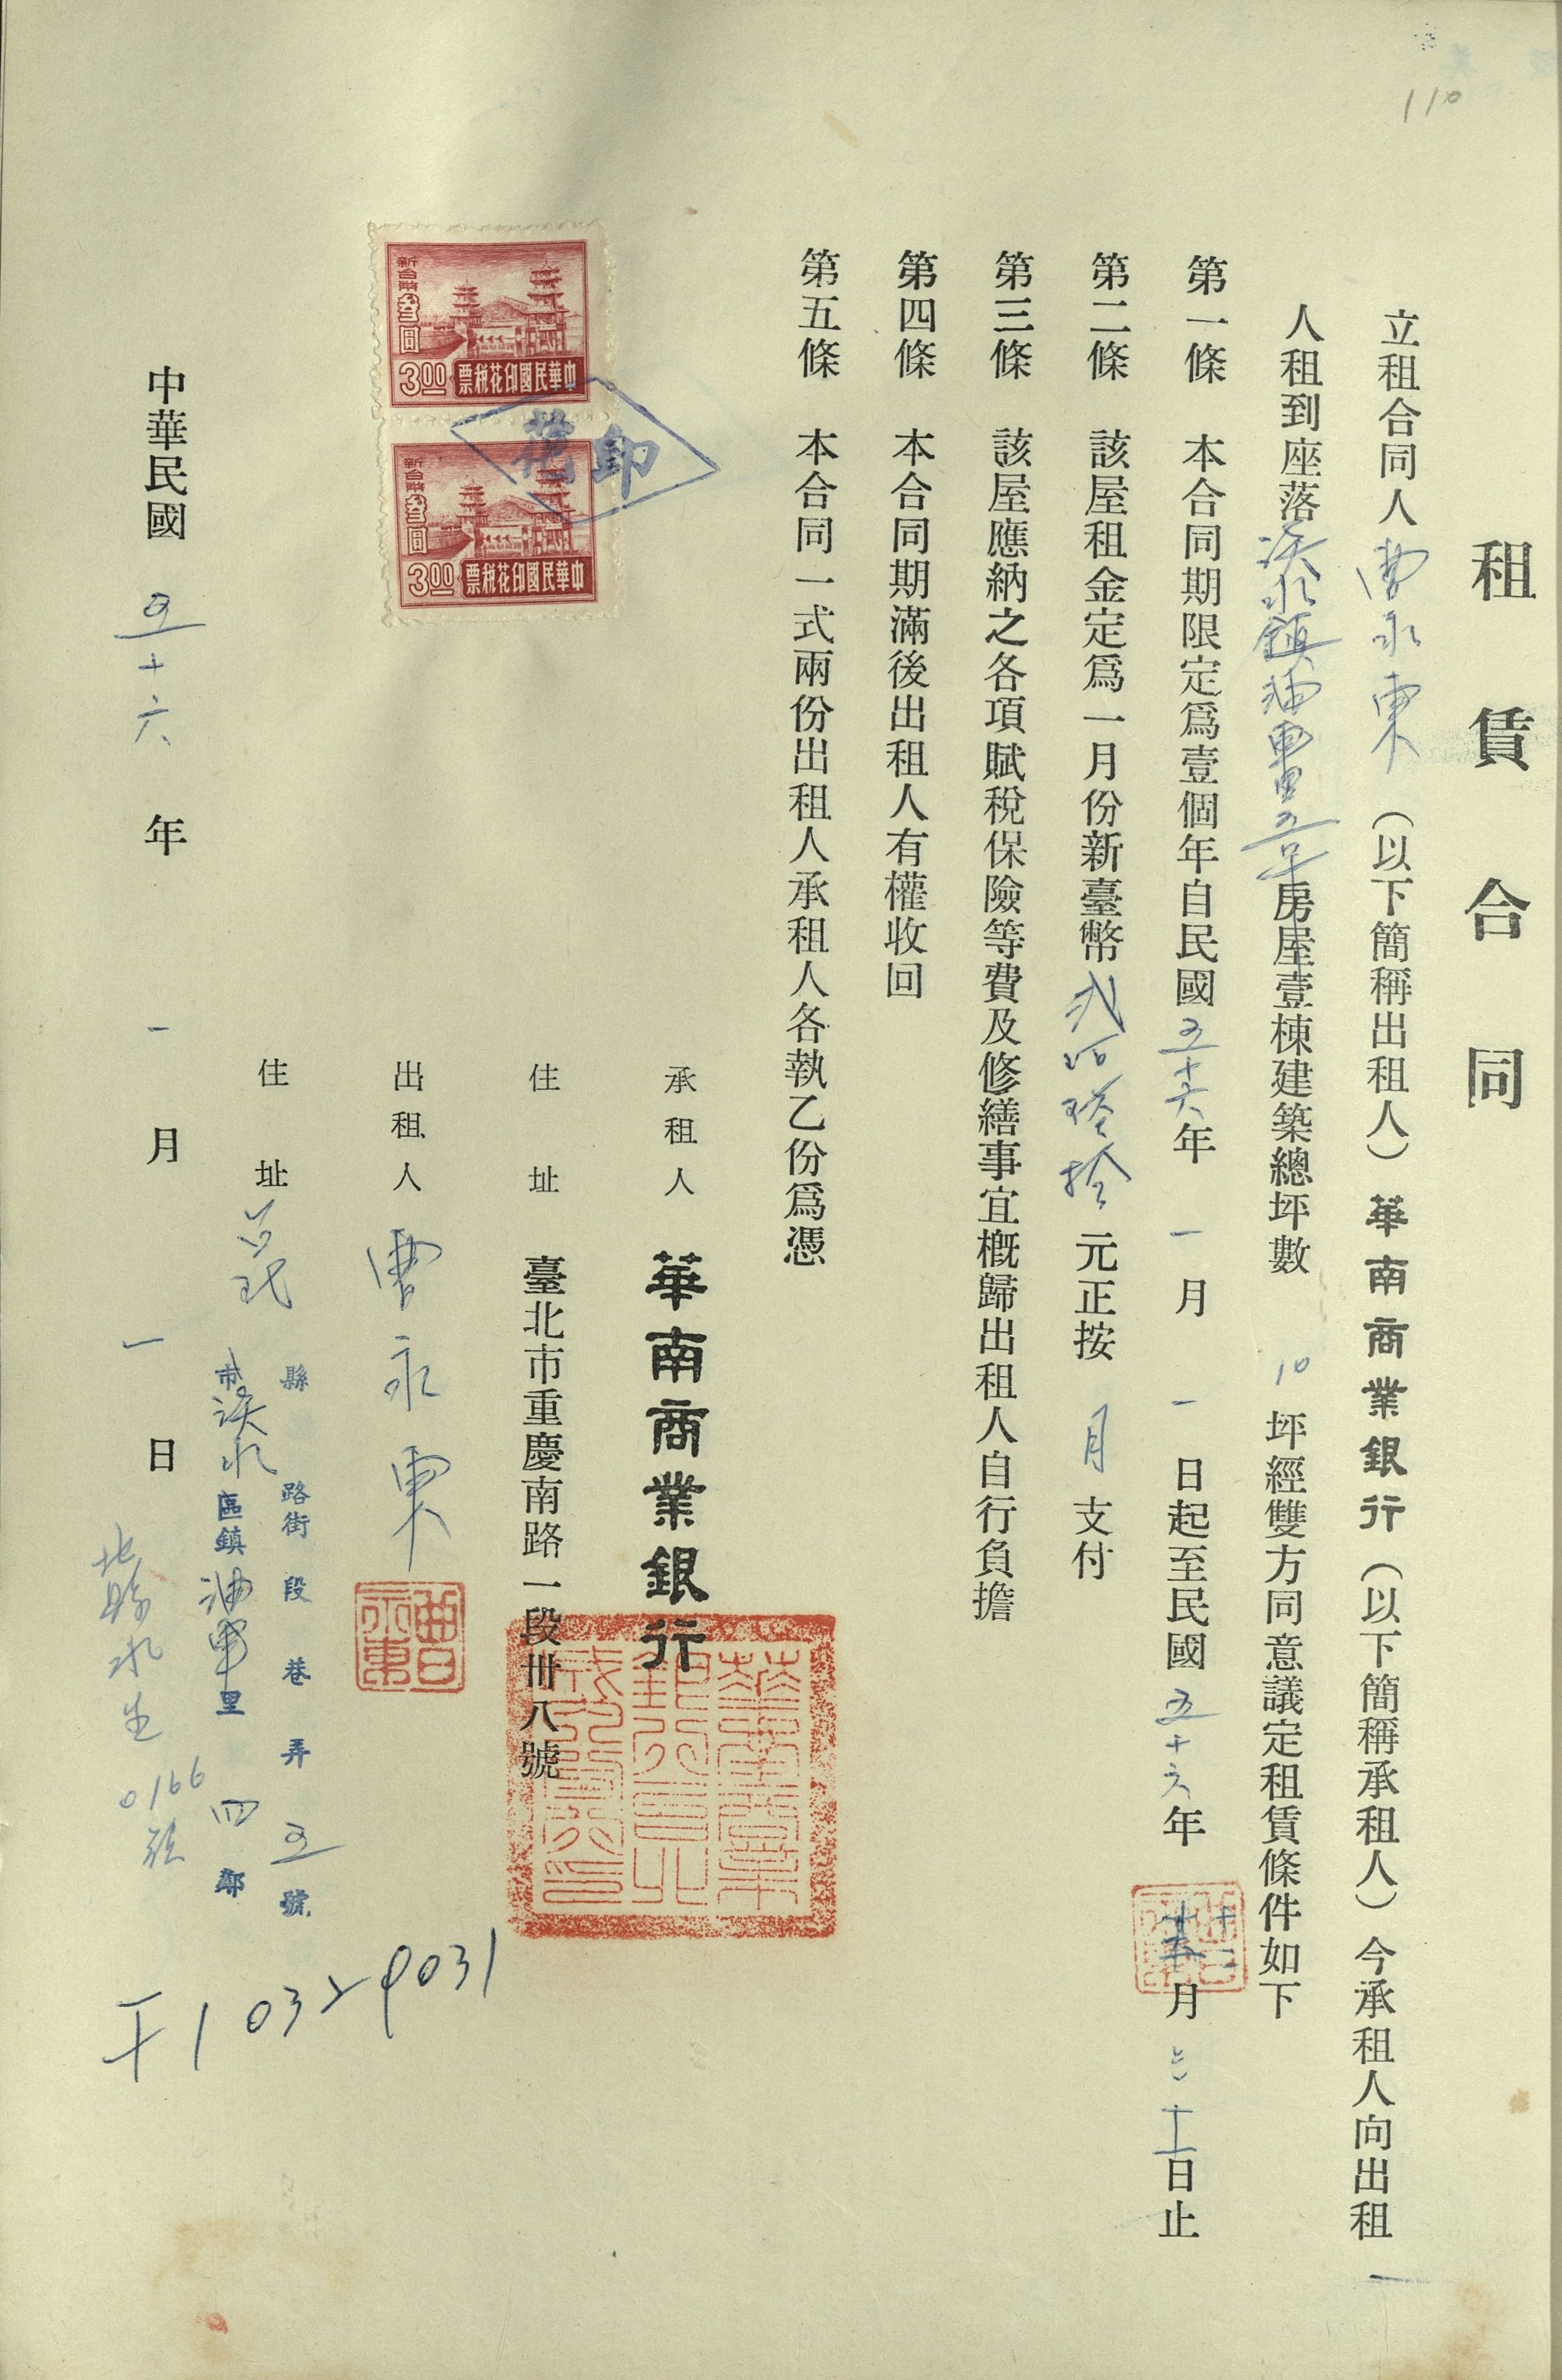 110
租賃合同
立租合同人曹永東（以下簡稱出租人）華南商業銀行（以下簡稱承租人）今承租人向出租
人租到座落淡水鎮油車里五号房屋壹棟建築總坪數10坪經雙方同意議定租賃條件如下
第一條 本合同期限定爲壹個年自民國五十六年一月一日起至民國五十六年十二月三十一日止
第二條 該屋租金定爲一月份新臺幣貳佰 拾元正按月支付
第三條 該屋應納之各項賦稅保險等費及修繕事宜概歸出租人自行負擔
第四條 本合同期滿後出租人有權收回
第五條 本合同一式兩份出租人承租人各執乙份爲憑
承租人 華南商業銀行
住址 臺北市重慶南路一段卅八號
出租人 曹永東
住址 縣 路街 段 巷 弄 五號
市 淡水 區鎮 油車里 四鄰
北縣 0166號
10329031
中華民國五十六年一月一日
新台幣 叁圓
3.00 中華民國印花稅票
新台幣 叁圓
3.00 中華民國印花稅票
印花
曹永東